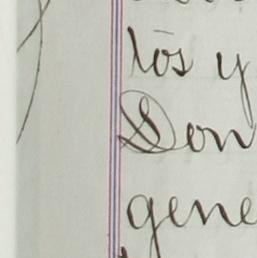 tos y
Don
gene